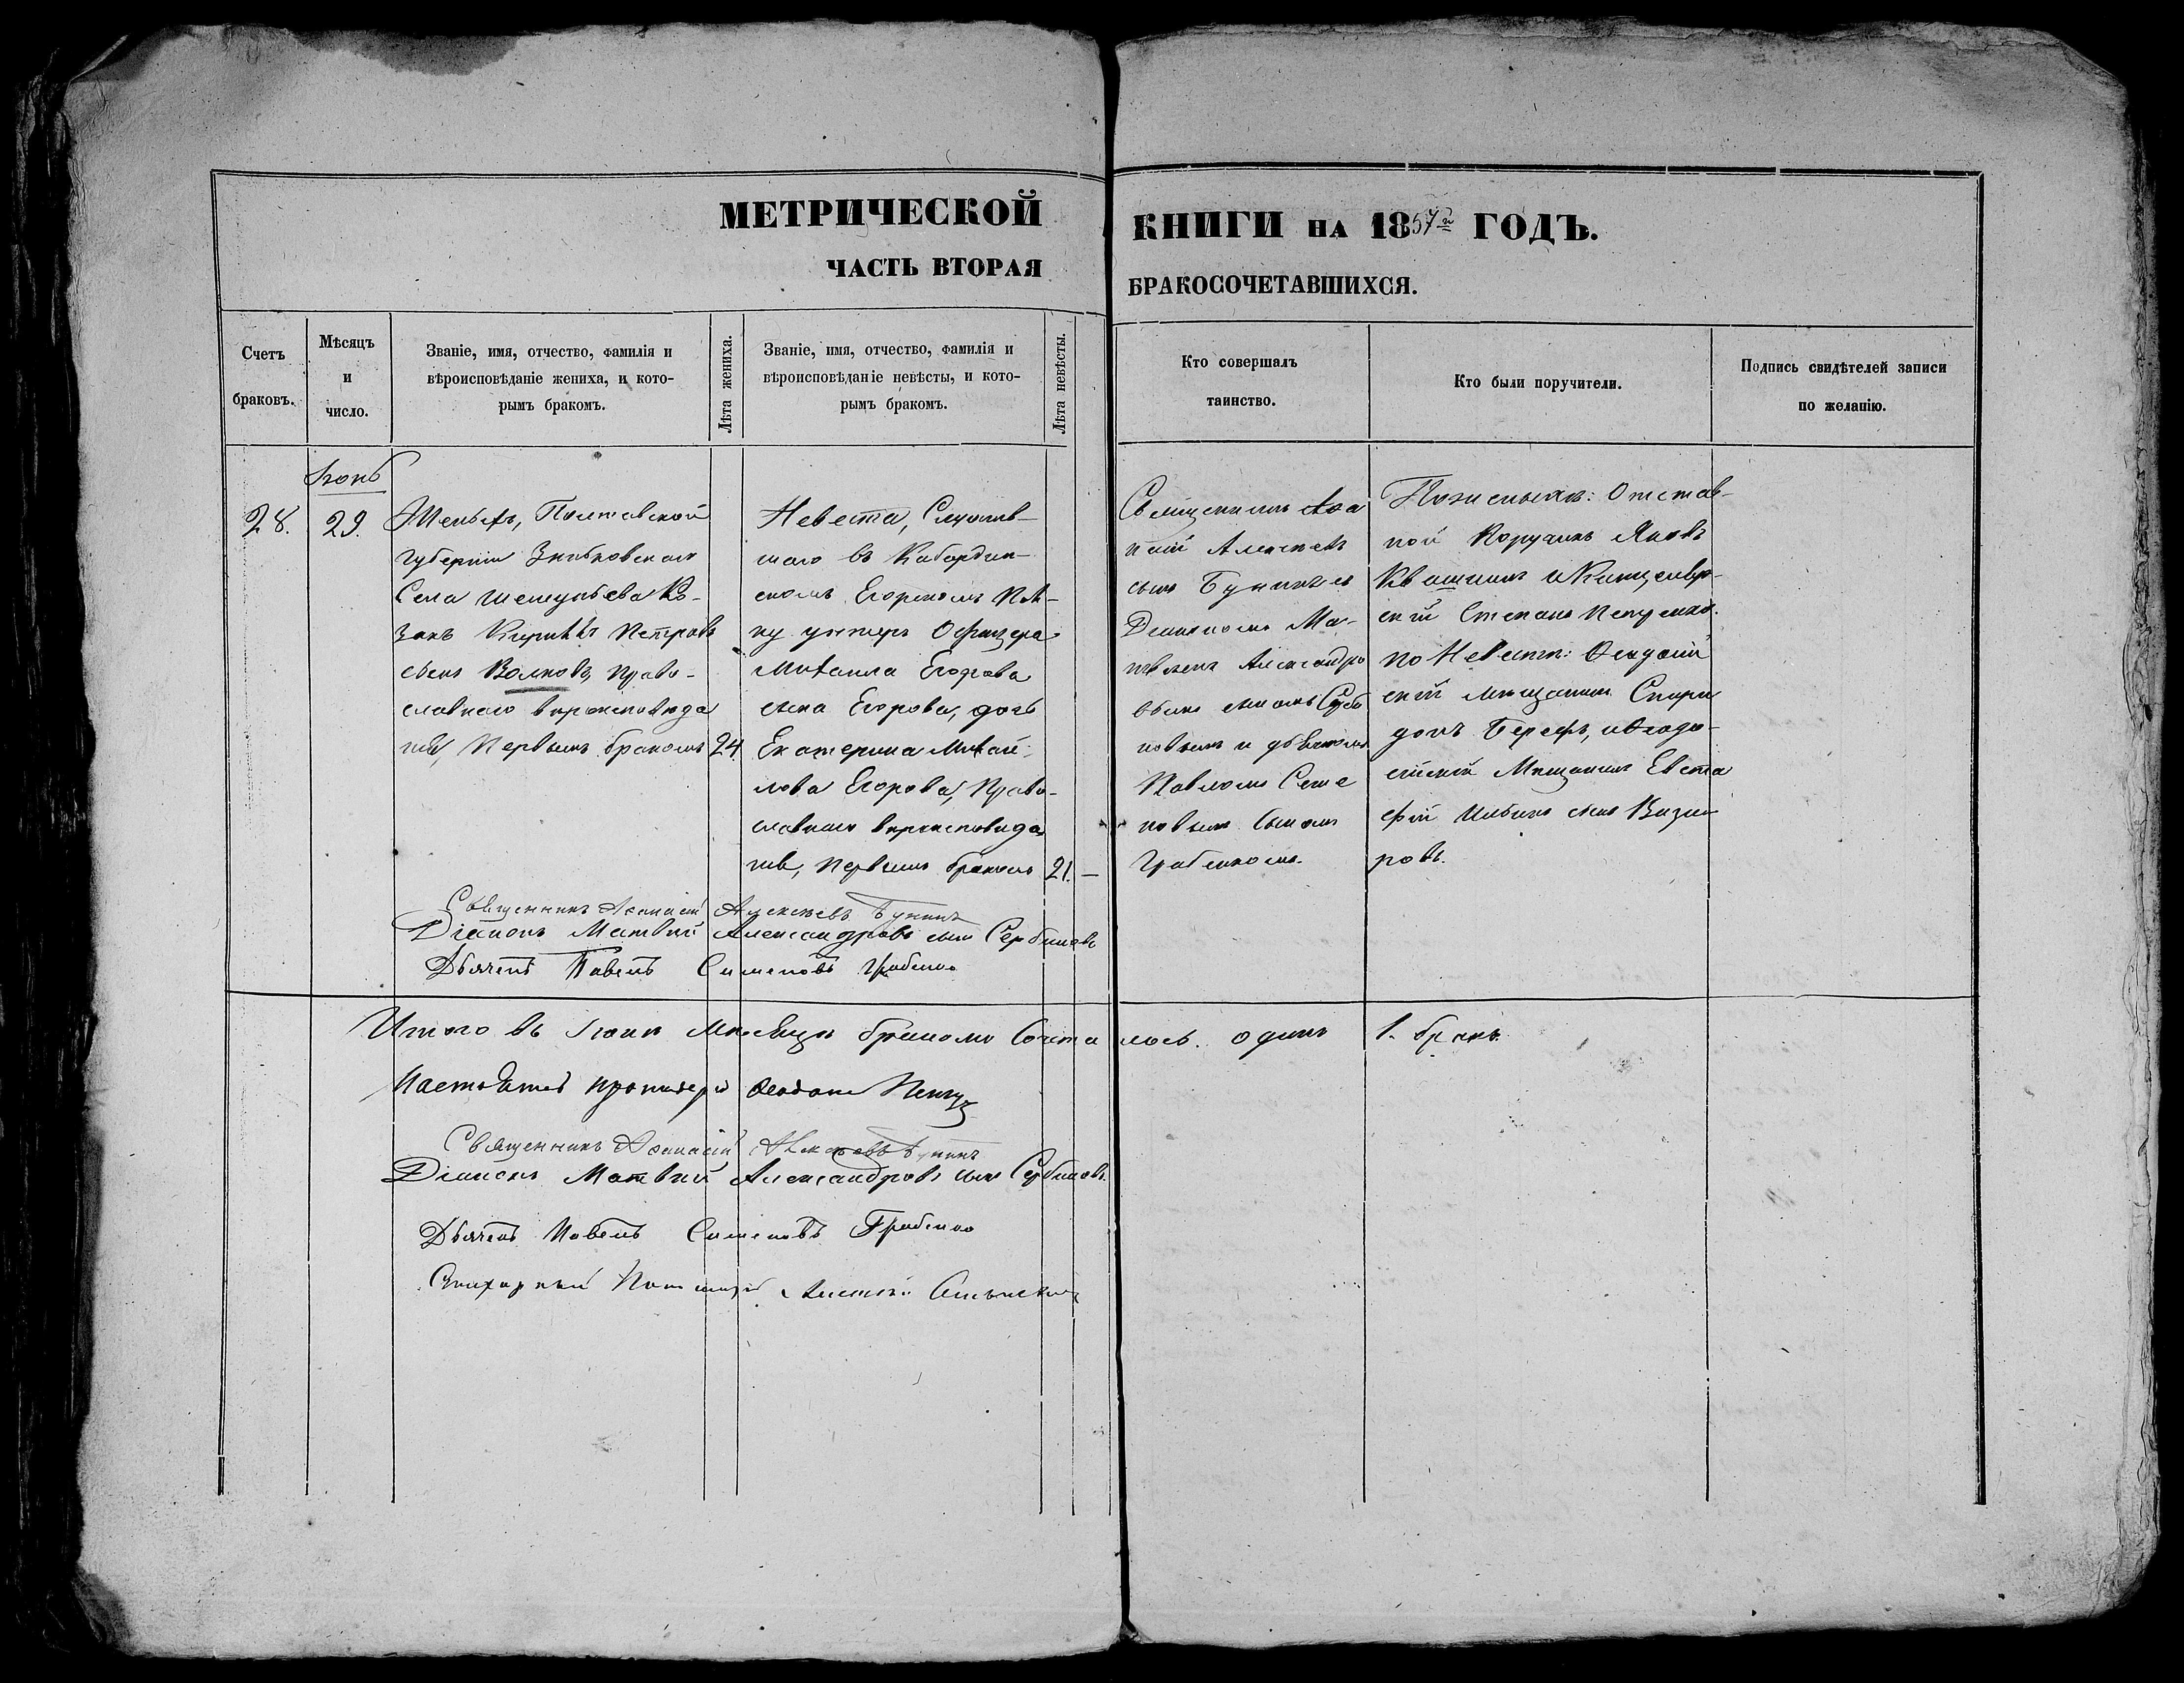 МЕТРИЧЕСКОЙ КНИГИ НА 1857й ГОДЪ.
ЧАСТЬ ВТОРАЯ БРАКОСОЧЕТАВШИХСЯ.
Счетъ браковъ.
Мѣсяцъ и число.
Званіе, имя, отчество, фамилія и
вѣроисповѣданіе жениха, и кото-
рымъ бракомъ.
Лѣта жениха.
Званіе, имя, отчество, фамилія и
вѣроисповѣданіе невѣсты, и кото-
рымъ бракомъ.
Лѣта невѣсты.
Кто совершалъ
таинство.
Кто были поручители.
Подпись свидѣтелей записи
по желанію.
28.
29.
Женихъ, Полтавской
губерніи Зньковскаго
Села Козакъ
Петровъ
сынъ Волковъ, право-
славнаго вѣроисповѣда
нія, Первымъ бракомъ
24
Невеста, Служив-
шаго въ Кабардин-
скомъ Егорскомъ Пол-
ку унтеръ Офицера
Михаила Егорова
сына Егорова, дочь
Екатерина Михай-
лова Егорова, Право-
славнаго вѣроисповѣда
нія, Первымъ бракомъ
21.
Священникъ Аѳа
насій Алексѣевъ
сынъ Бунинъ съ
Діакономъ Ма-
твѣемъ Александро
вымъ сыномъ Серби
новымъ и дьячкомъ
Павломъ Семе
новымъ Сыномъ
Грабенкомъ.
По жениха: Отстав-
ной Поручикъ Яковъ
Квашнинъ
Степанъ
по Невесте: Ѳеодосій
скій мещанинъ Спири
донъ Берефъ, и Ѳеодо-
сійскій Мещанинъ Евста
фій Ильинъ сынъ Вази
ровъ.
Священникъ Аѳанасій Алексѣевъ Бунинъ
Діаконъ Матвій Александровъ сынъ Сербиновъ
Дьячекъ Павелъ Симеоновъ Грабенко
Итого въ Іюнѣ Мѣсяцѣ бракомъ Сочеталось. одинъ 1. бракъ.
Настоятель протоіерей
Священникъ Аѳанасій Алексѣевъ Бунинъ
Діаконъ Матвій Александровъ сынъ Сербиновъ.
Дьячекъ Павелъ Симеоновъ Грабенко